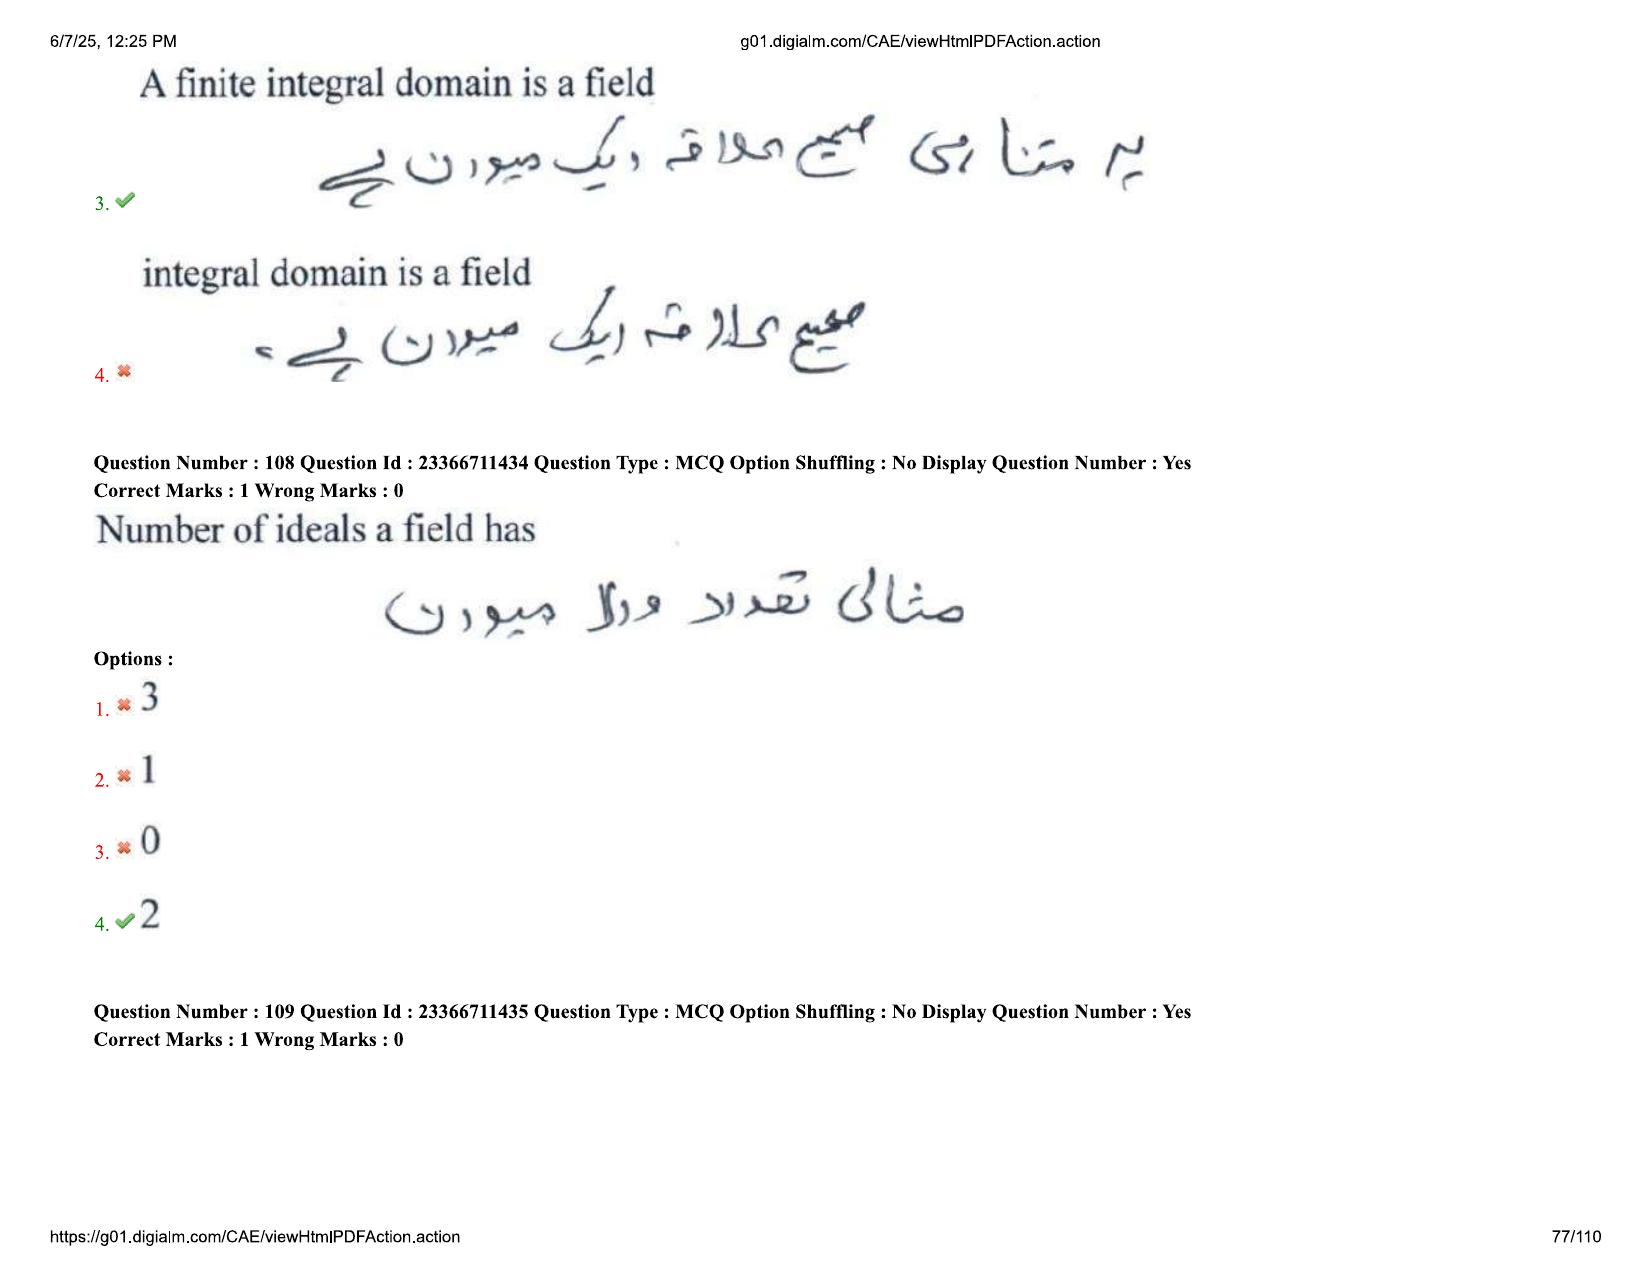 6/7/25, 12:25 PM
g01.digialm.com/CAE/viewHtmlPDFAction.action
A finite integral domain is a field
یہ متناہی صحیح علاقہ ایک میدان ہے
3.
integral domain is a field
صحیح علاقہ ایک میدان ہے۔
4.
Question Number : 108 Question Id : 23366711434 Question Type : MCQ Option Shuffling : No Display Question Number : Yes
Correct Marks : 1 Wrong Marks : 0
Number of ideals a field has
مثالی تعداد والا میدان
Options :
1. 3
2. 1
3. 0
4. 2
Question Number : 109 Question Id : 23366711435 Question Type : MCQ Option Shuffling : No Display Question Number : Yes
Correct Marks : 1 Wrong Marks : 0
https://g01.digialm.com/CAE/viewHtmlPDFAction.action
77/110